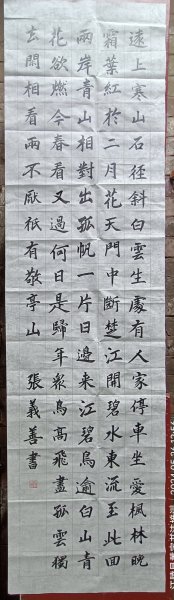 遠上寒山石徑斜白雲生處有人家停車坐愛楓林晚
霜葉紅於二月花天門中斷楚江開碧水東流至此回
兩岸青山相對出孤帆一片日邊來江碧鳥逾白山青
花欲燃今春看又過何日是歸年眾鳥高飛盡孤雲獨
去閑相看兩不厭祇有敬亭山 張義善書